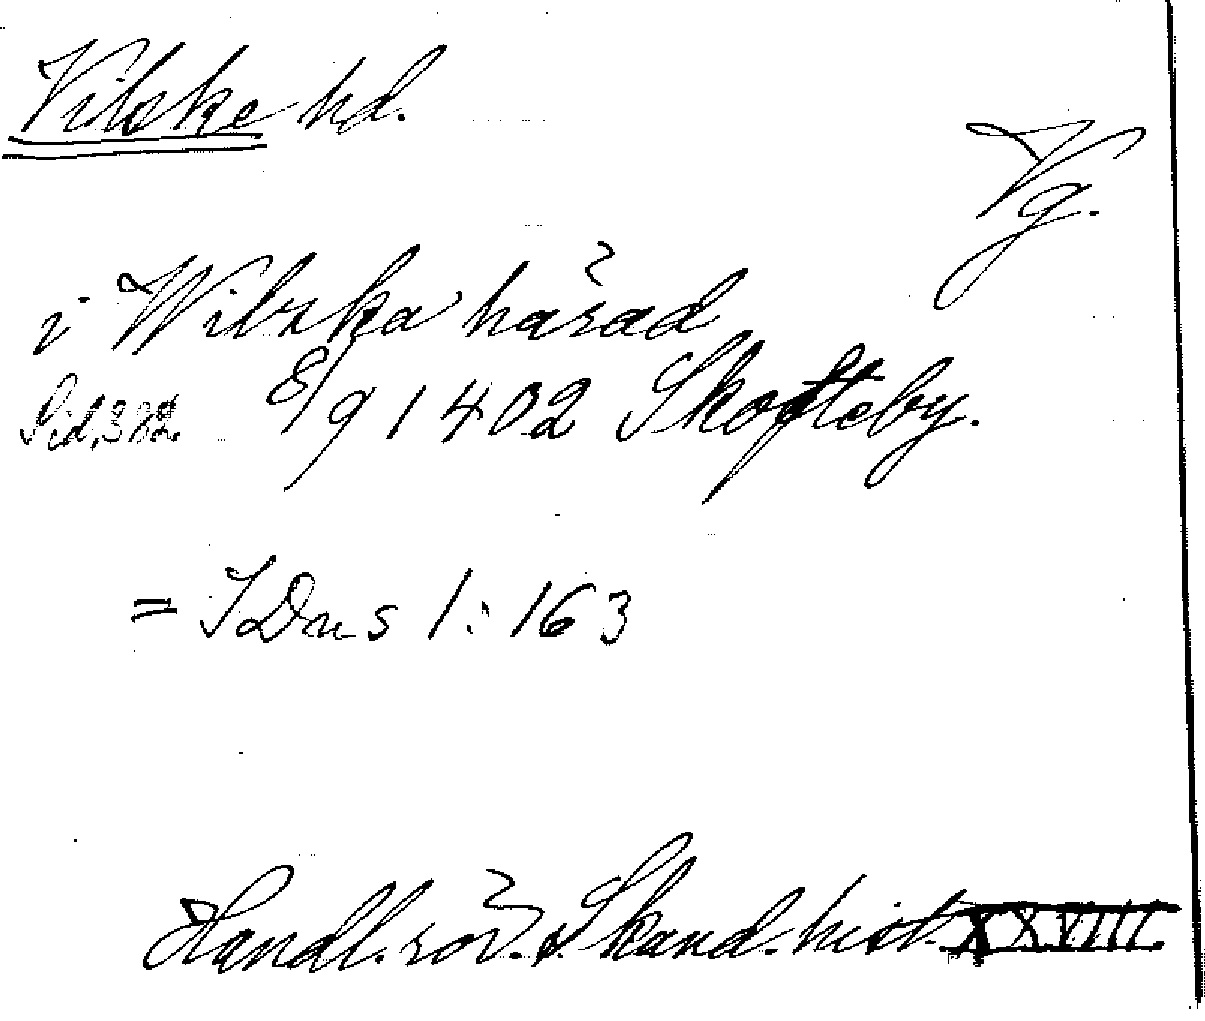 Vilske hd.
Vg.
i Wilska härad
Sid. 382. 8/9 1402 Skofteby.
= SDns 1:163
Handl. rör. Skand. hist. XXVIII.